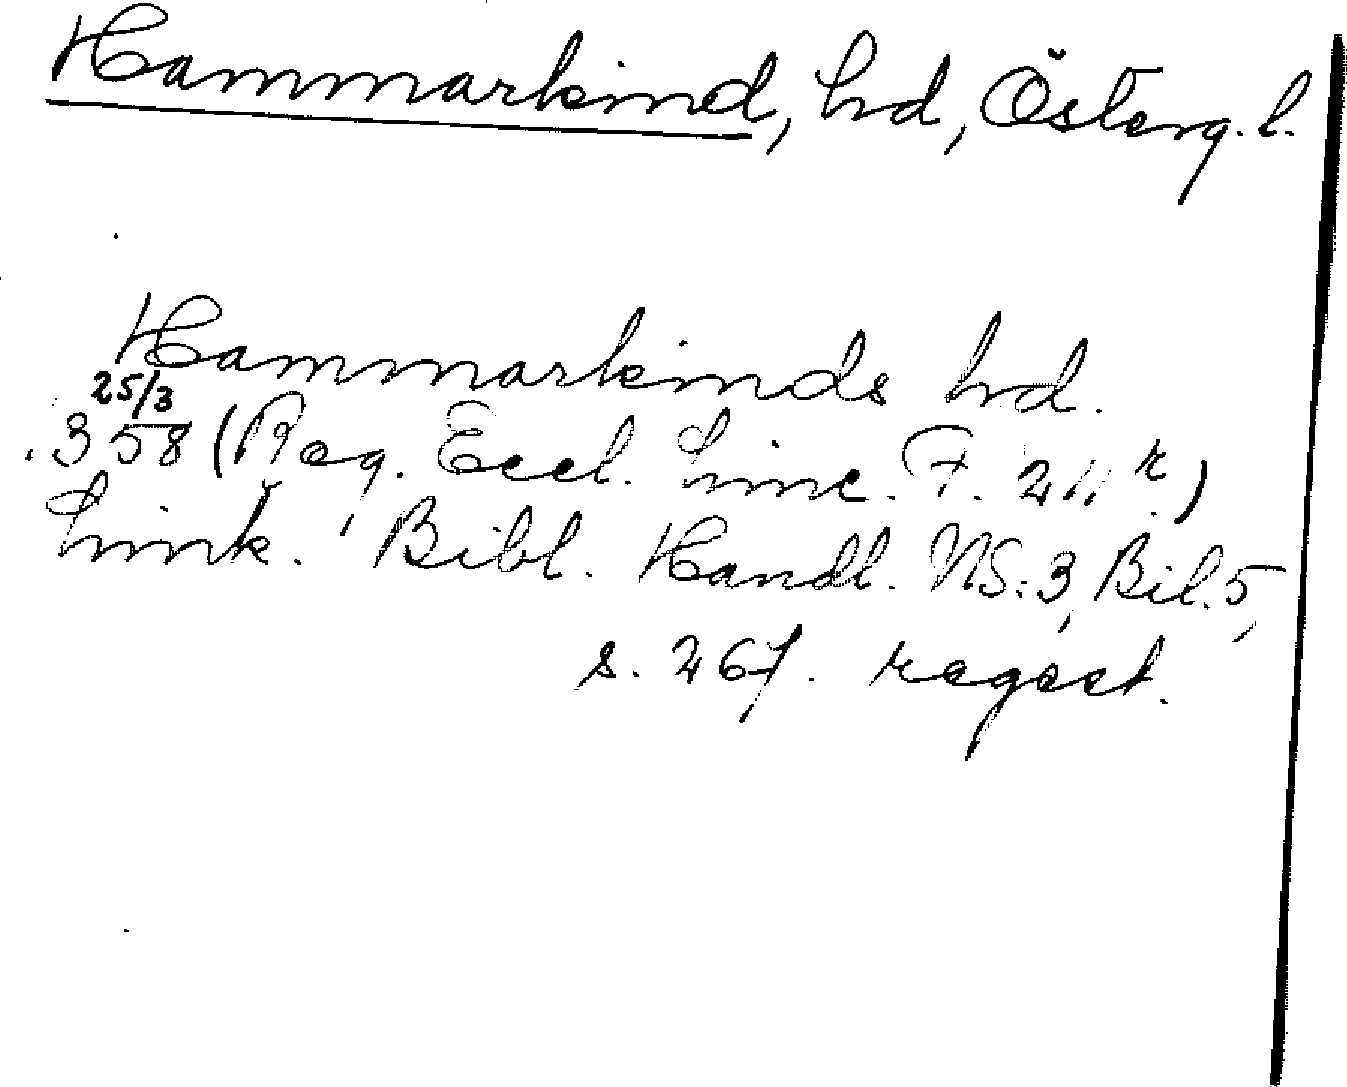 Hammarkind, hd, Österg. l.
Hammarkinds hd.
25/3
358 (Reg. Eccl. Linc. F. 211 r.)
Link. Bibl. Handl. NS: 3, Bil. 5,
s. 267. regest.